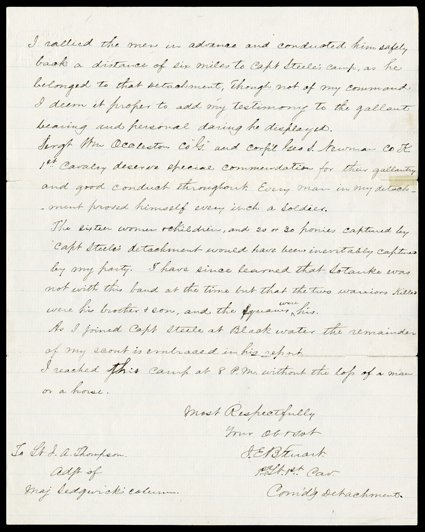 I rallied the men in advance and conducted him safely
back a distance of six miles to Capt Steele's camp, as he
belonged to that detachment, though not of my command
I deem it proper to add my testimony to the gallant
bearing and personal daring he displayed.
Sergt Wm Occleston Co G. and corp'l Geo S. Newman Co K
1st Cavalry deserve special commendation for their gallantry
and good conduct throughout. Every man in my detach-
-ment proved himself every inch a soldier.
The sixteen women & children, and 50 or so ponies captured by
Capt Steele's detachment would have been inevitably captured
by my party. I have since learned that Satanke was
not with this band at the time but that the two warriors killed
were his brother & son, and the squaws were his.
As I joined Capt Steele at Black water the remainder
of my scout is embraced in his report
I reached this camp at 8 P.M. without the loss of a man
or a horse.
Most Respectfully
Your Obt Svt
J.E.B. Stuart
1st Lt. 1st Cav
Comdg Detachment.
To Lt J. A. Thompson
Adjt of
Maj Sedgwick's column.